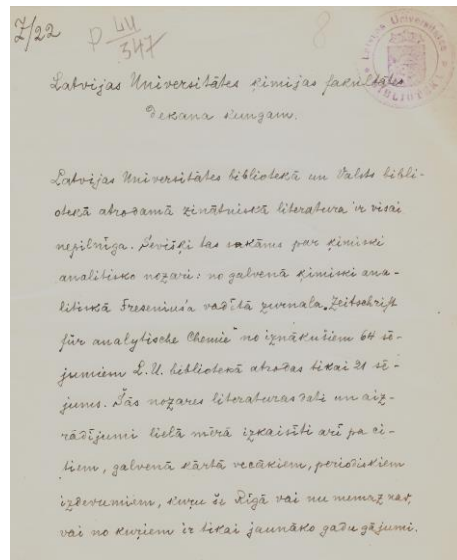 Z/22
P LU/347
8
Latvijas Universitātes BIBLIOTEKA
Latvijas Universitātes ķīmijas fakultātes
dekana kungam.
Latvijas Universitātes bibliotekā un Valsts bibli-
otekā atrodamā zinātniskā literatura ir visai
nepilnīga. Sevišķi tas sakāms par ķīmiski
analitisko nozari: no galvenā ķīmiski ana-
litiskā Fresenius'a vadītā žurnala „Zeitschrift
für analytische Chemie" no iznākušiem 64 sē-
jumiem L.U. bibliotekā atrodas tikai 21 sē-
jums. Šās nozares literaturas dati un aiz-
rādījumi lielā mērā izkaisīti arī pa ci-
tiem, galvenā kārtā vecākiem, periodiskiem
izdevumiem, kuŗu še Rīgā vai nu nemaz nav,
vai no kuŗiem ir tikai jaunāko gadu gājumi.